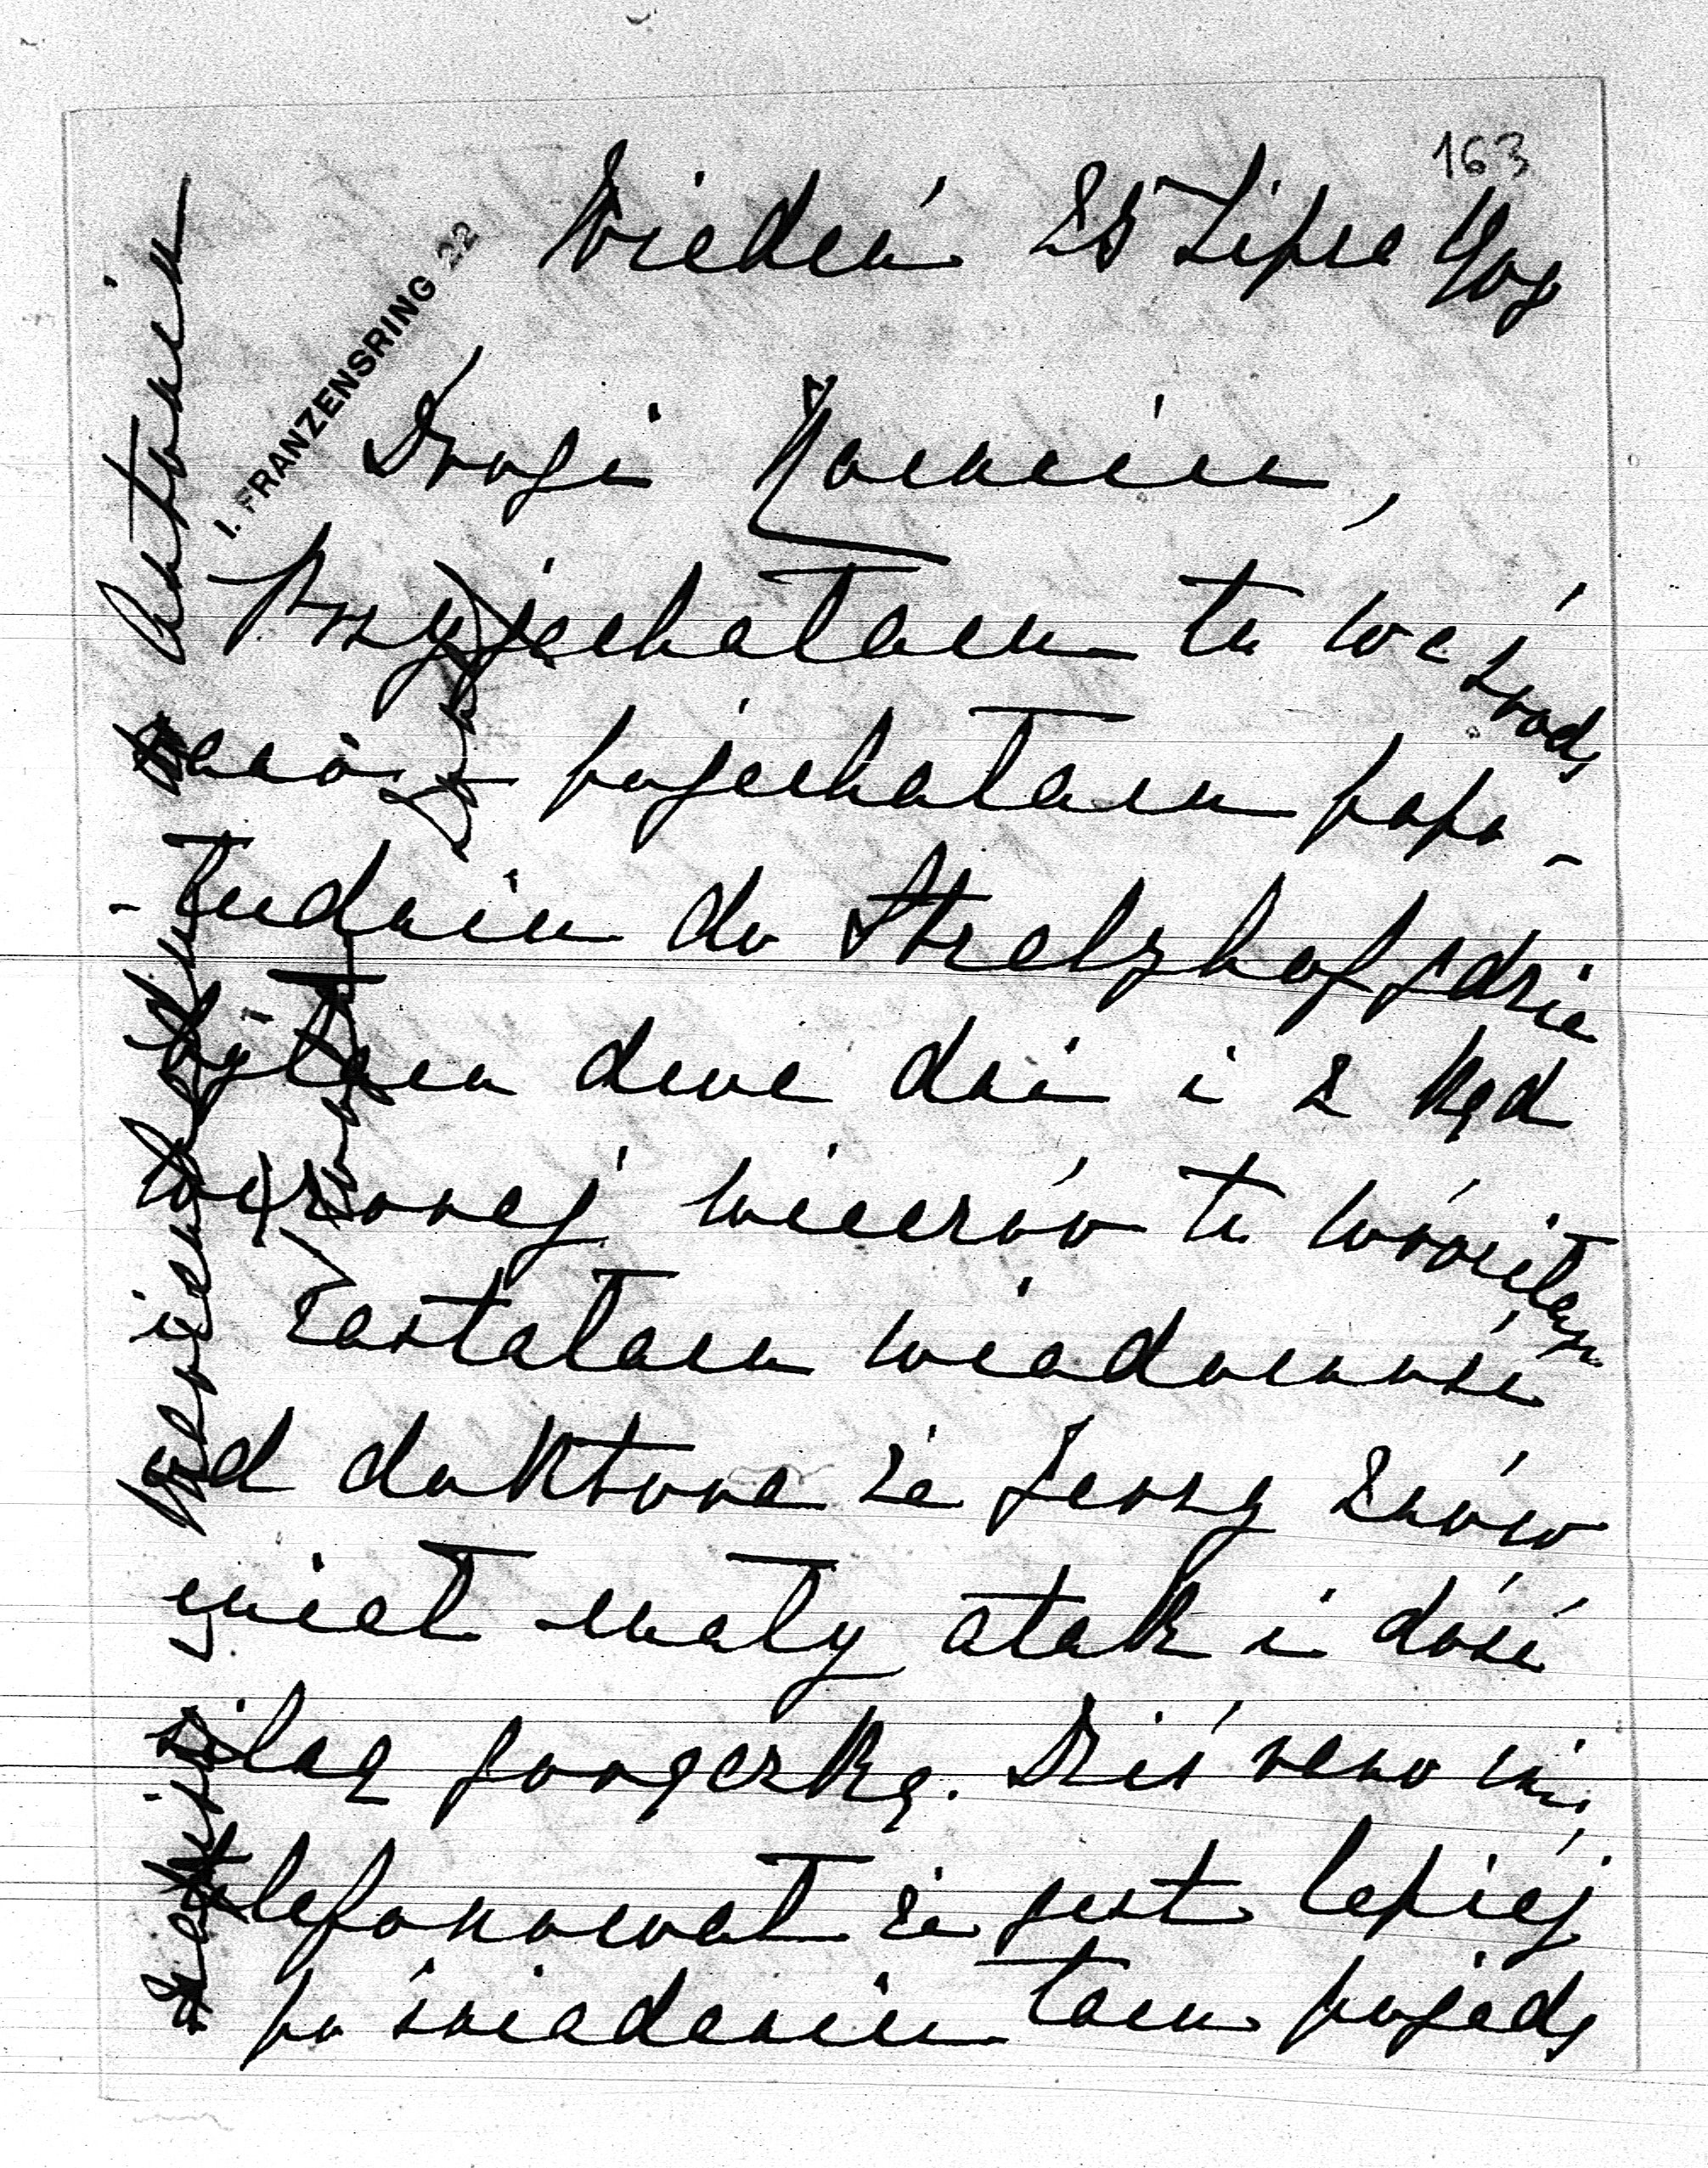 163
I. FRANZENSRING 22
Wiedeń 25 Lipca 909
Drogi
Przyjechałam tu we środę
pojechałam popo-
-łudniu do Strelzhof gdzie
byłam dwe dni i z kąd
wczoraj wieczór tu wróciłam
i zastałam wiadomość
od doktora że Jerzy znów
miał mały atak i dość
silną gorączkę. Dziś rano mi
telefonował że jest lepiej
po śniadaniu tam pojadę